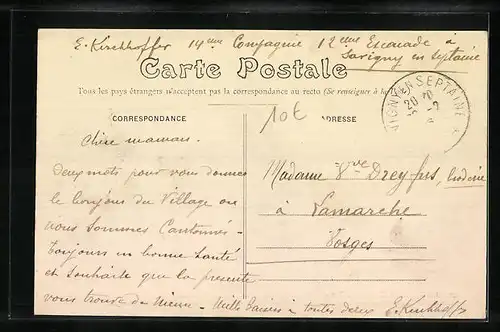 E. Kirchhoffer 14eme Compagnie 12eme Escouade à
Savigny en septaine
Carte Postale
Tous les pays étrangers n'acceptent pas la correspondance au recto (Se renseigner à la
EN SEPTAINE
CORRESPONDANCE
10€
ADRESSE
Chère maman.
Deux mots pour vous donner
le bonjour du Village ou
nous sommes Cantonnés-
toujours en bonne santé
et souhaite que la présente
vous trouve de même - Mille baisers à toutes deux E. Kirchhoffer
Madame Vve Dreyfus,
à Lamarche
Vosges